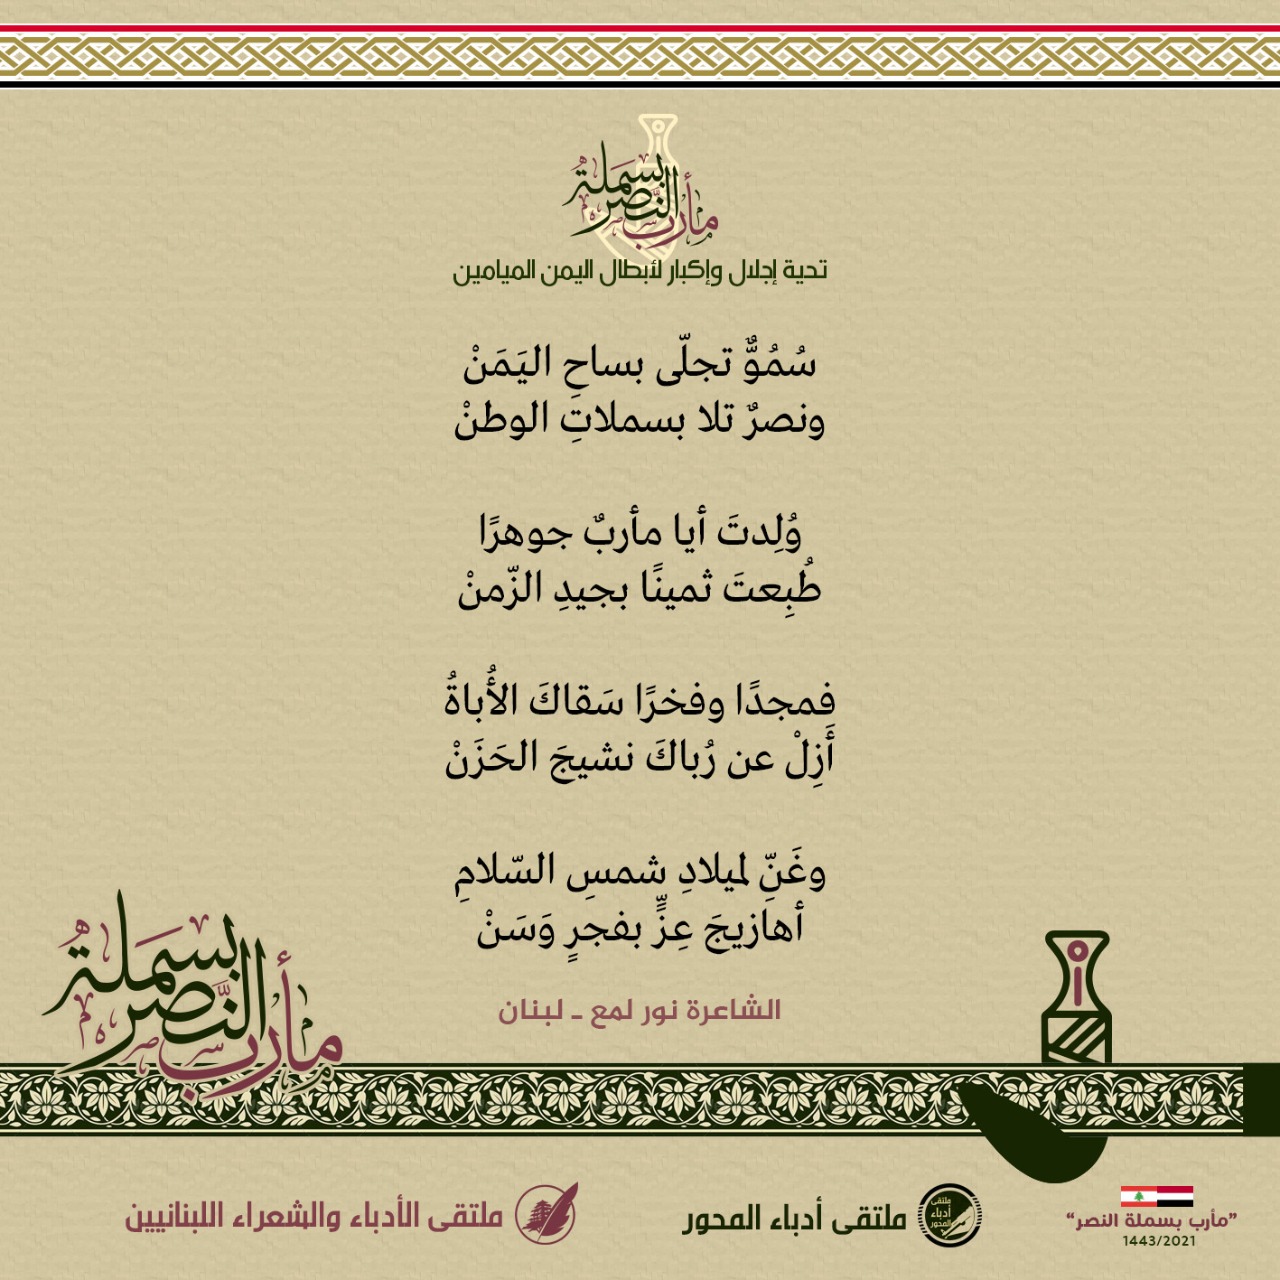 مأرب بسملة النصر
تحية إجلال وإكبار لأبطال اليمن الميامين
سُمُوٌّ تجلّى بساحِ اليَمَنْ
ونصرٌ تلا بسملاتِ الوطنْ
وُلِدتَ أيا مأربٌ جوهرًا
طُبِعتَ ثمينًا بجيدِ الزّمنْ
فمجدًا وفخرًا سَقاكَ الأُباةُ
أَزِلْ عن رُباكَ نشيجَ الحَزَنْ
وغَنِّ لميلادِ شمسِ السّلامِ
أهازيجَ عِزٍّ بفجرٍ وَسَنْ
الشاعرة نور لمع ـ لبنان
مأرب بسملة النصر
”مأرب بسملة النصر“
1443/2021
ملتقى أدباء المحور
ملتقى أدباء المحور
ملتقى الأدباء والشعراء اللبنانيين